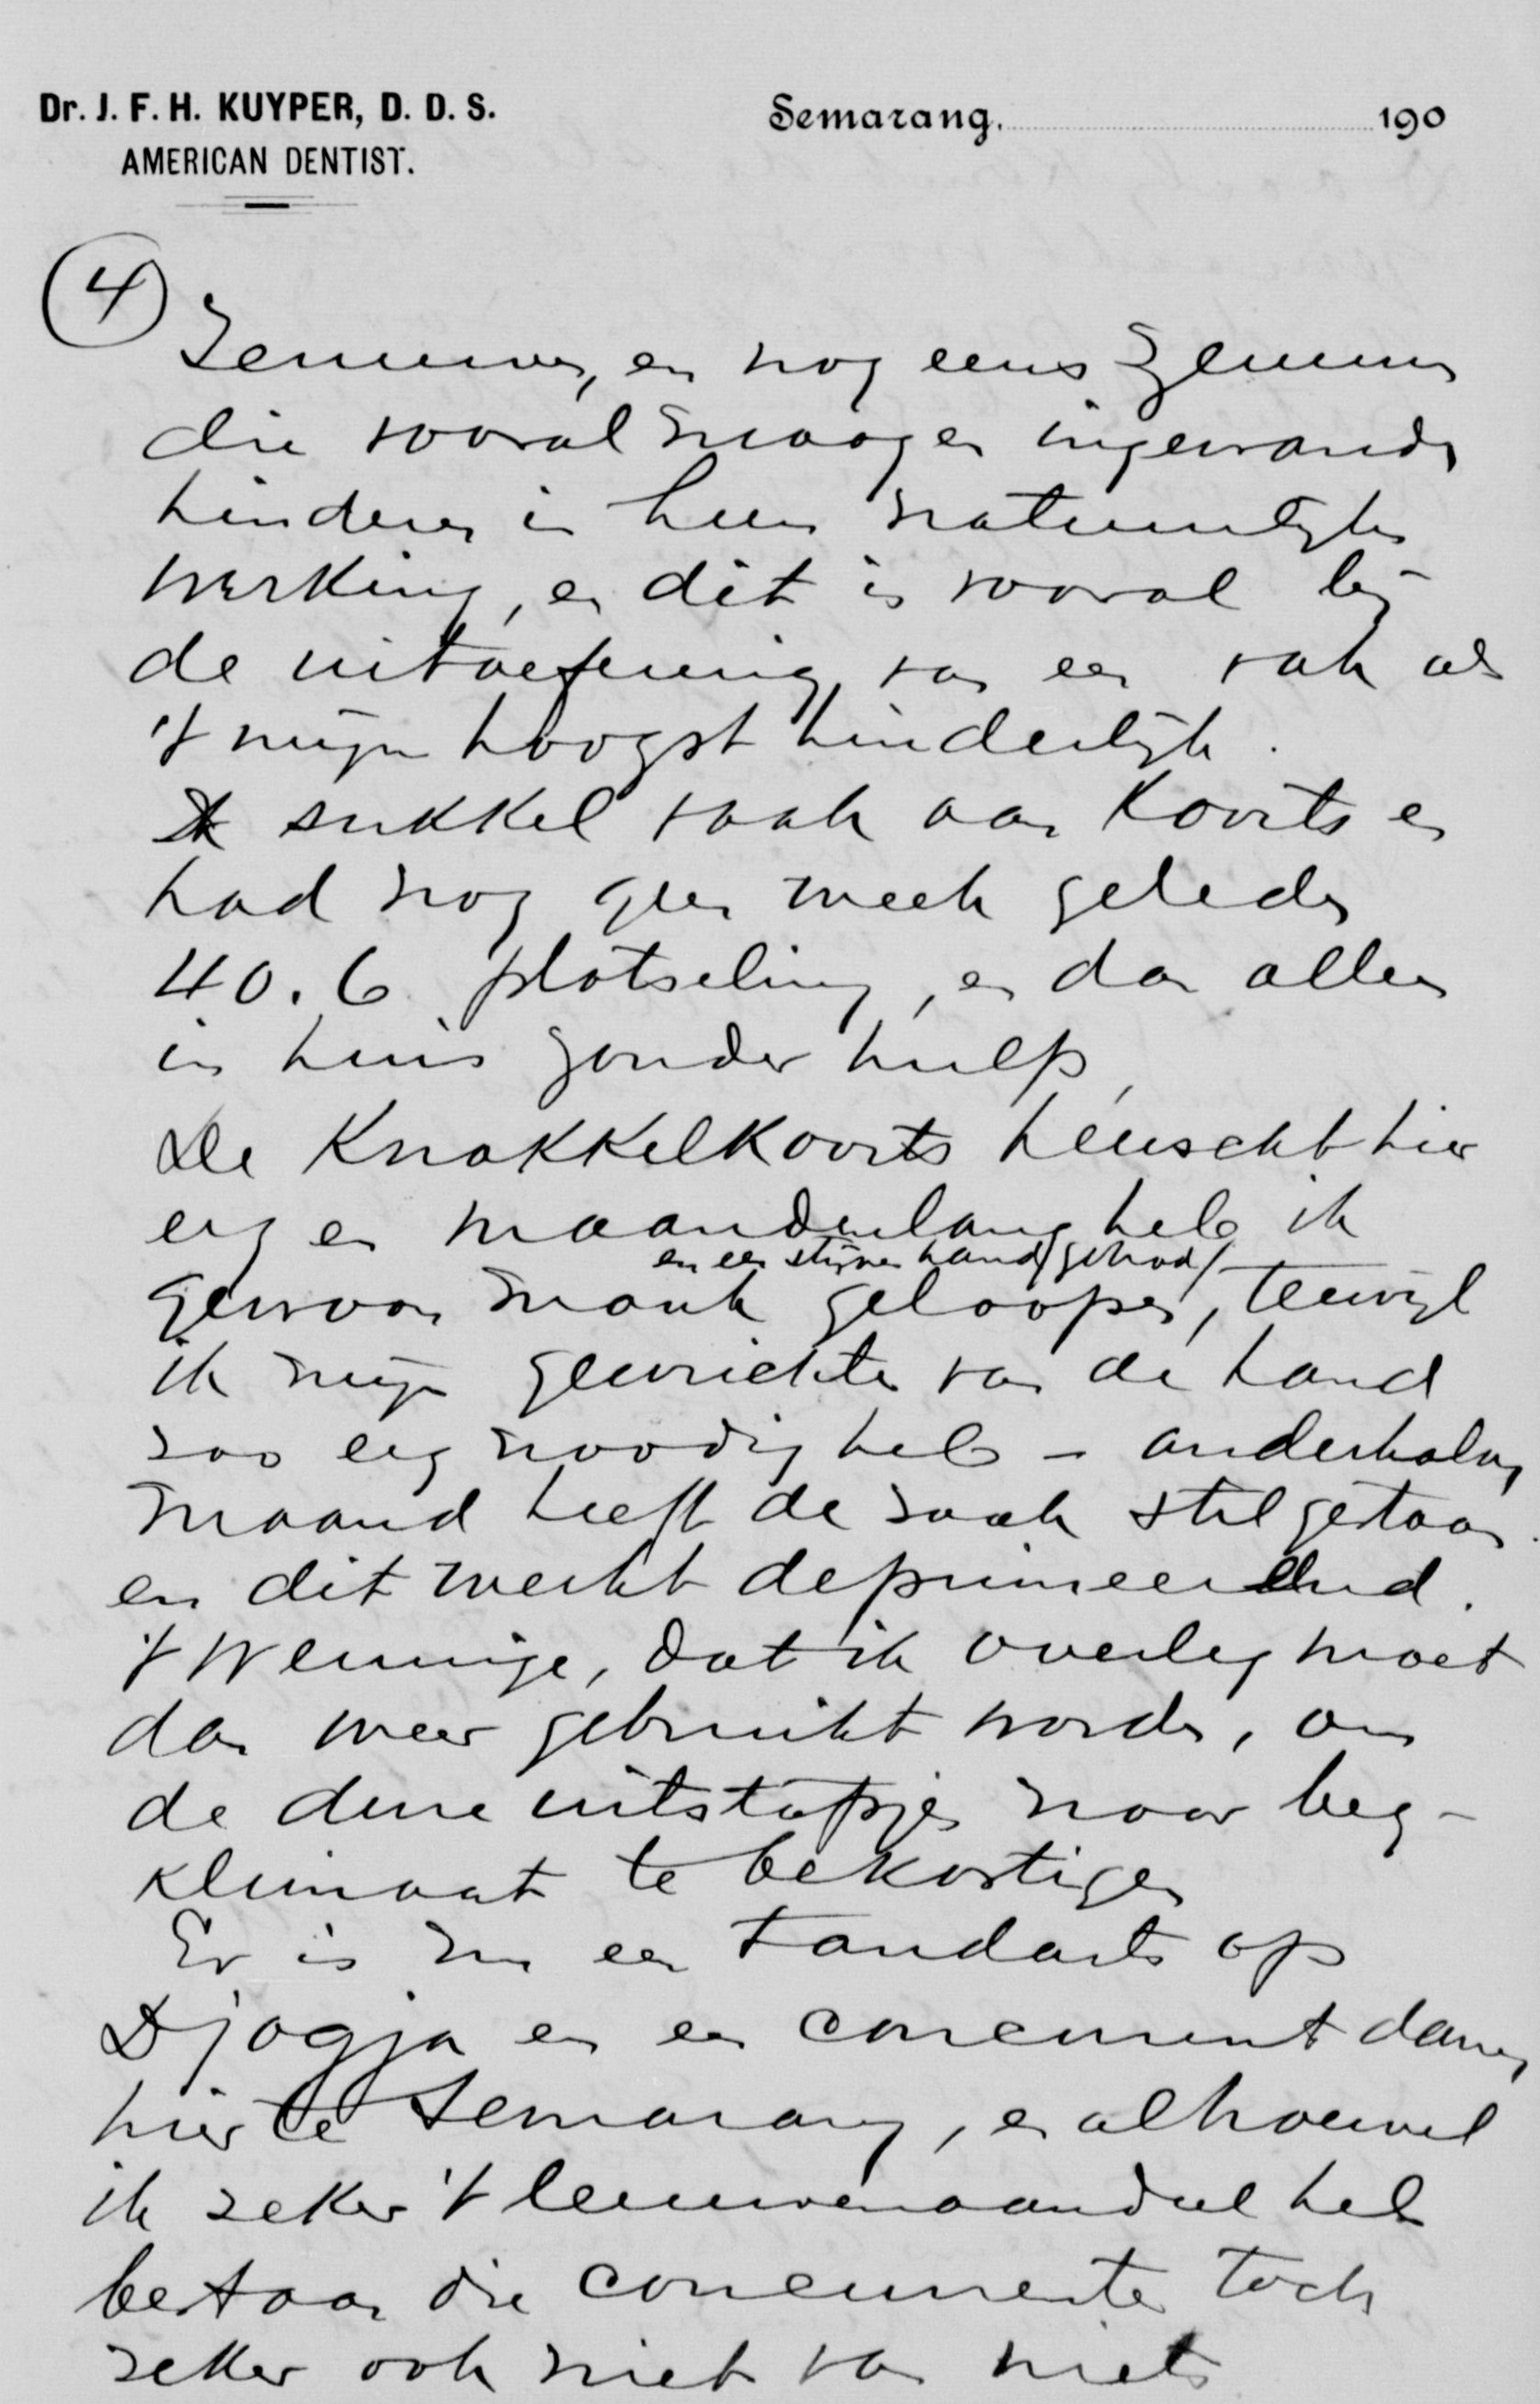 Dr. J. F. H. KUYPER, D. D. S.
AMERICAN DENTIST.
Semarang, 190
4
Zenuwen, en nog eens zenuwen
die vooral maag en ingewanden
hinderen in hun natuurlijke
werking, en dit is vooral bij
de uitoefening van een vak als
't mijne hoogst hinderlijk.
Ik sukkel vaak aan Koorts en
had nog geen week geleden
40.6 plotseling, en dan alleen
in huis zonder hulp,
De Knokkelkoorts heerscht hier
erg en maandenlang heb ik
en een stijve hand gehad
gewoon mank geloopen, terwijl
ik mijn gewrichten van de hand
zoo erg noodig heb – anderhalve
maand heeft de zaak stil gestaan.
en dit werkt deprimeerend.
't Weinige, dat ik overleg moet
dan weer gebruikt worden, om
de dure uitstapjes naar berg-
klimaat te bekostigen
Er is nu een tandarts op
Djogja en een concurrent
hier te Semarang, en alhoewel
ik zeker 't leeuwenaandeel heb
bestaan die concurrenten toch
zeker ook niet van niets